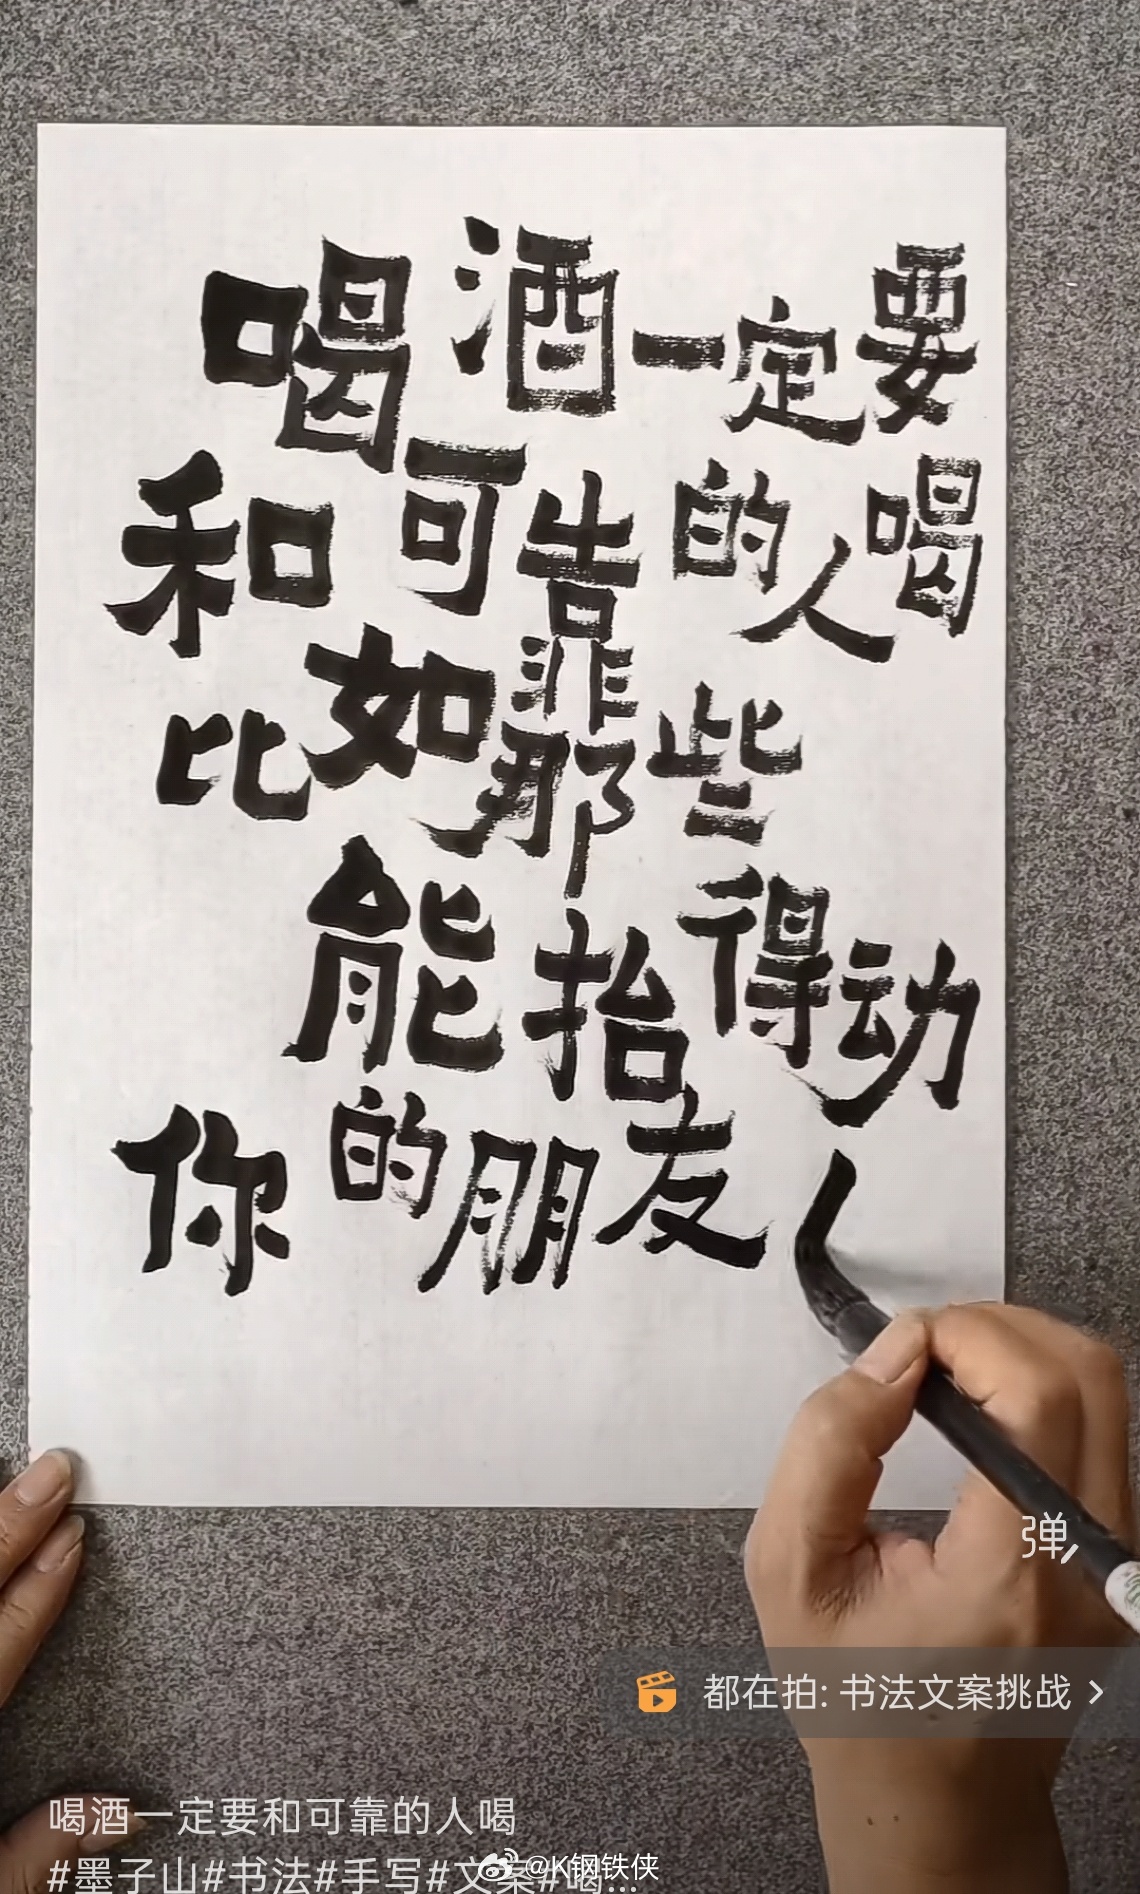 喝酒一定要
和可靠的人喝
比如那些
能抬得动
你的朋友
弹
都在拍: 书法文案挑战 >
喝酒一定要和可靠的人喝
#墨子山#书法#手写#文案#喝...
@K钢铁侠